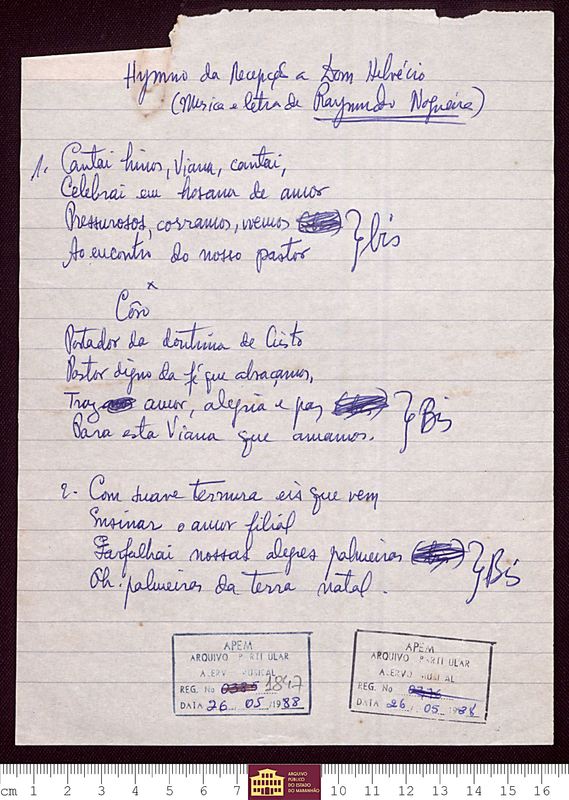 Hymno da Recepção a Dom Helvécio
(Musica e letra de Raymundo Nogueira)
1. Cantai hinos, Viana, cantai,
Celebrai em hosana de amor
Pressurosos, corramos, vremos } bis
Ao encontro do nosso pastor
x
Côro
Portador da doutrina de Cristo
Pastor digno da fé que abraçamos,
Traz amor, alegria e paz } Bis
Para esta Viana que amamos.
2. Com suave ternura eis que vem
Ensinar o amor filial
Farfalhai nossas alegres palmeiras } Bis
Oh. palmeiras da terra natal.
APEM
ARQUIVO PARTIULAR
ACERVO MUSICAL
REG. No 0385 1847
DATA 26 / 05 / 1988
APEM
ARQUIVO PARTIULAR
ACERVO MUSICAL
REG. No
DATA 26 / 05 / 1988
cm 1 2 3 4 5 6 7 ARQUIVO PÚBLICO DO ESTADO DO MARANHÃO 10 11 12 13 14 15 16